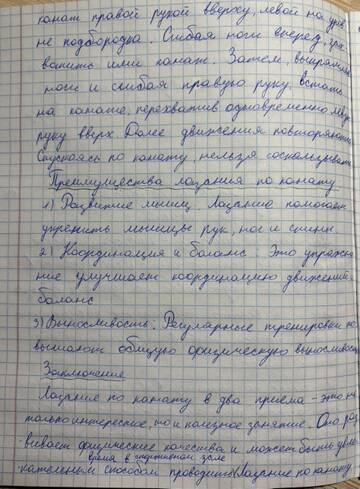 канат правой рукой вверху, левой на уров
не подбородка. Сгибая ноги вперед, зах
ватить ими канат. Затем, выпрямляя
ноги и сгибая правую руку, встать
на канате, перехватив одновременно левую
руку вверх. Далее движения повторяются
Спускаясь по канату нельзя соскальзывать
Преимущества лазания по канату
1) Развитие мышц. Лазание помогает
укрепить мышцы рук, ног и спины.
2) Координация и баланс. Это упражне
ние улучшает координацию движений
баланс
3) Выносливость. Регулярные тренировки по
вышают общую физическую выносливость
Заключение
Лазание по канату в два приема - это не
только интересное, но и полезное занятие. Оно раз
вивает физические качества и может быть увле
время в спортивном зале
кательным способом проводить Лазание по канату